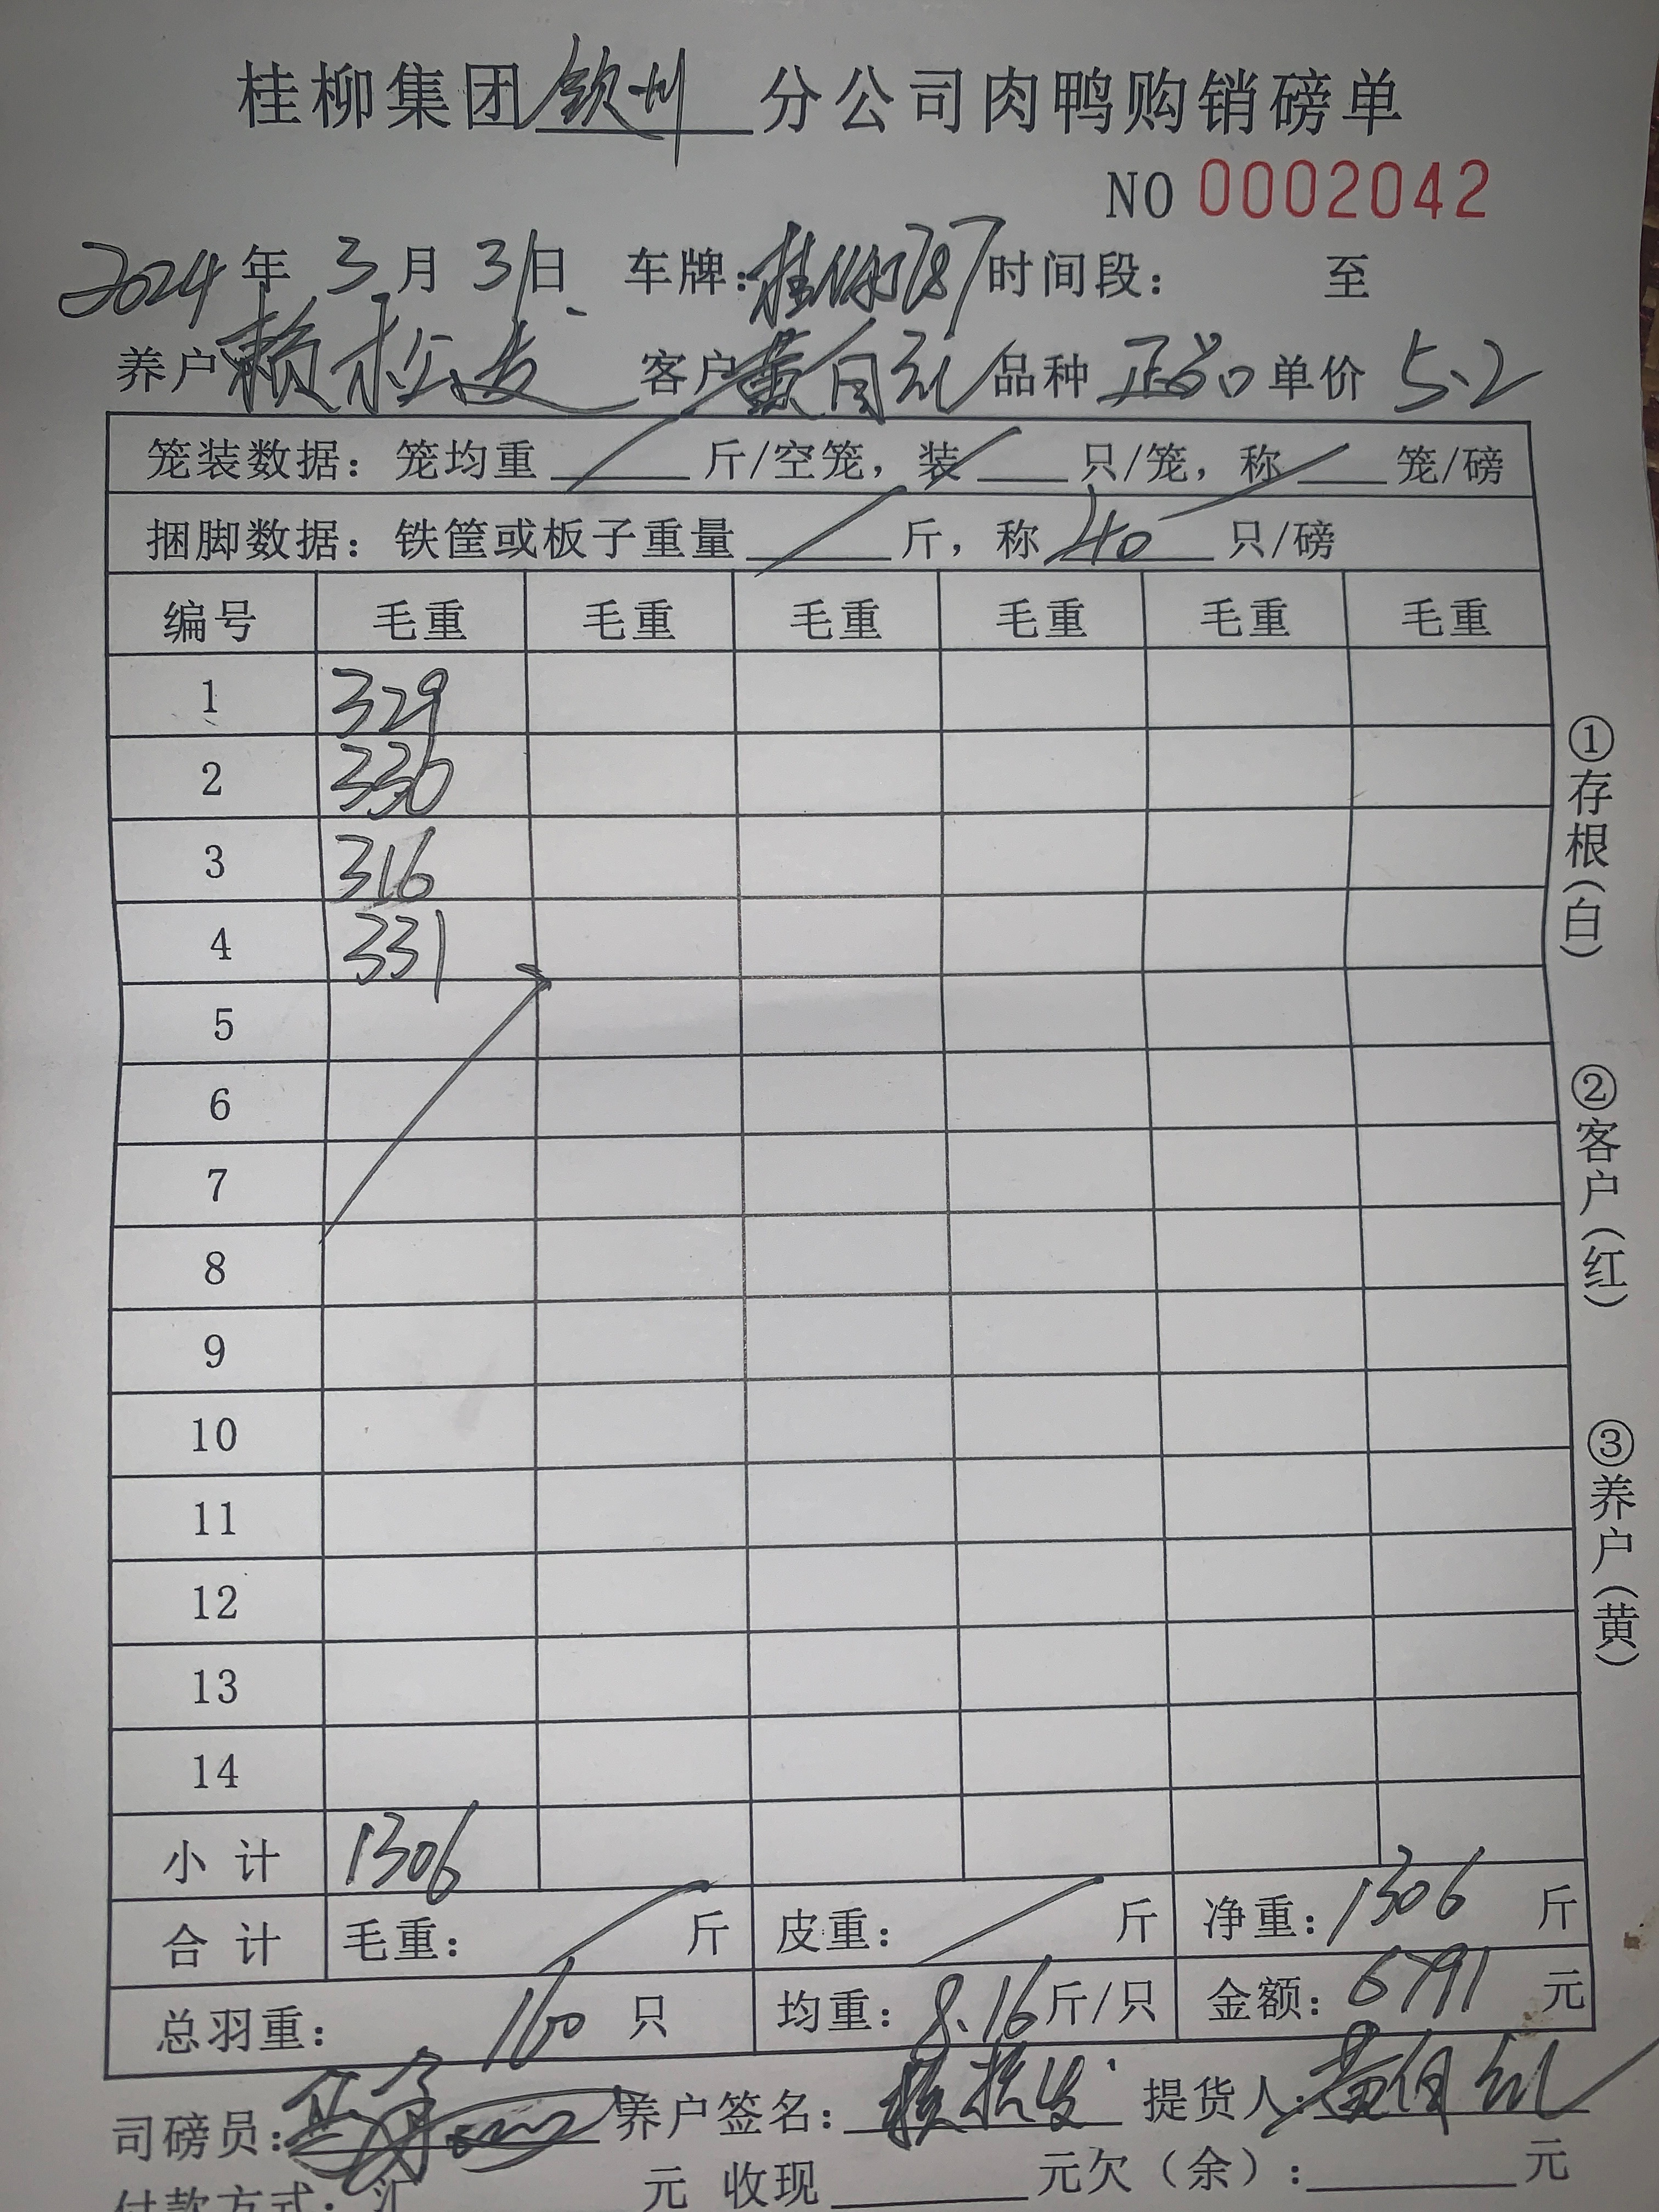 桂柳集团钦州分公司肉鸭购销磅单
NO 0002042
2024年3月31日 车牌：桂 787 时间段： 至
养户 赖松友 客户 黄自 品种 正品 单价 5.2
笼装数据：笼均重 / 斤/空笼，装 / 只/笼，称 / 笼/磅
捆脚数据：铁筐或板子重量 / 斤，称 40 只/磅
编号 毛重 毛重 毛重 毛重 毛重 毛重
1 329
2 330
3 316
4 331
5
6
7
8
9
10
11
12
13
14
小计 1306
合计 毛重： / 斤 皮重： / 斤 净重：1306 斤
总羽重： 160 只 均重：8.16斤/只 金额：6791 元
司磅员： 养户签名： 提货人：黄自
付款方式：汇 元 收现 元欠（余）： 元
①存根（白）
②客户（红）
③养户（黄）